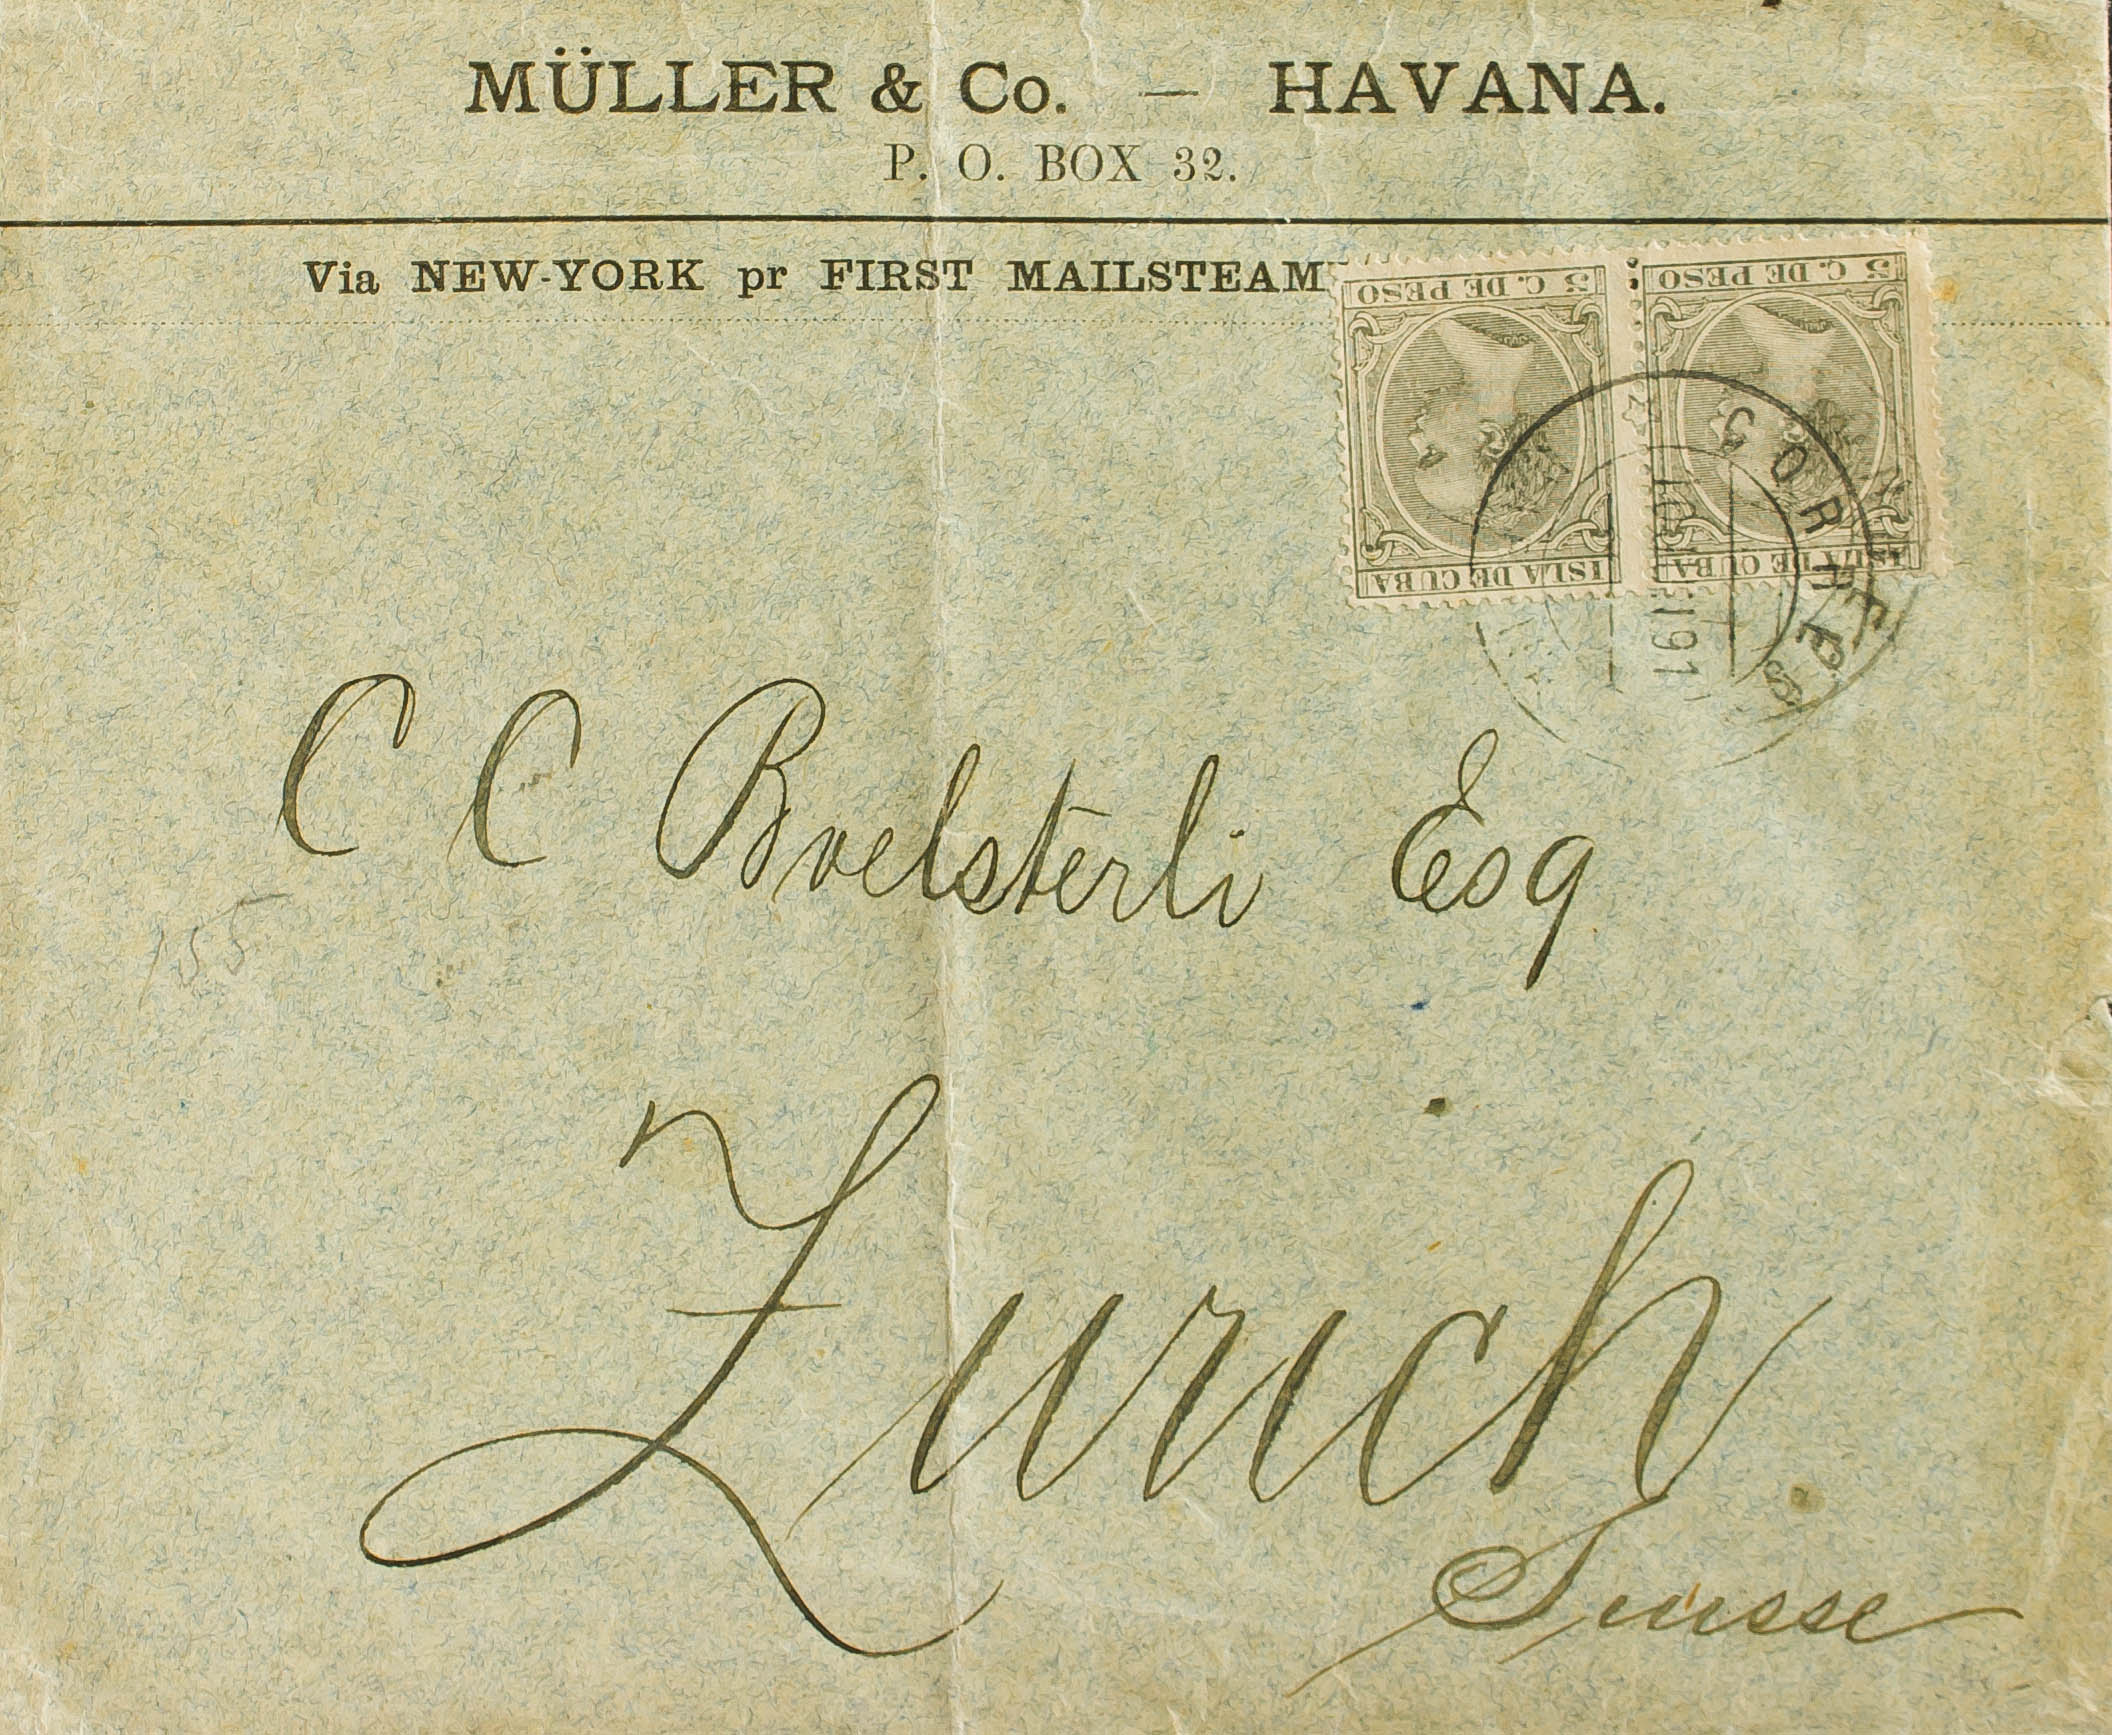 MÜLLER & Co. — HAVANA.
P. O. BOX 32.
Via NEW-YORK pr FIRST MAILSTEAM
5 C. DE PESO 5 C. DE PESO
ISLA DE CUBA ISLA DE CUBA
CORREOS
91
C C Boelsterli Esq
155
Zurich
Suisse